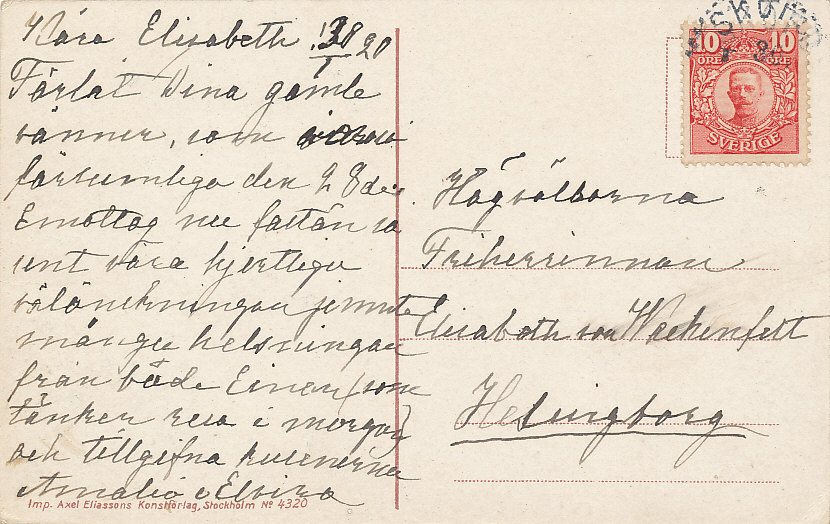 Kära Elisabeth! 30/1 20
Förlåt Dina gamla
vänner, som varit
försumliga den 28de.
Emottag nu fastän så
sent våra hjertliga
välönskningar jemnte
många helsningar
från både Einar (som
tänker resa i morgon)
och tillgifna kusinerna
Amalia o Elvira
Imp. Axel Eliassons Konstförlag, Stockholm No 4320
10 10
ÖRE ÖRE
SVERIGE
Högvälborna
Friherrinnan
Elisabeth von Wachenfelt
Helsingborg